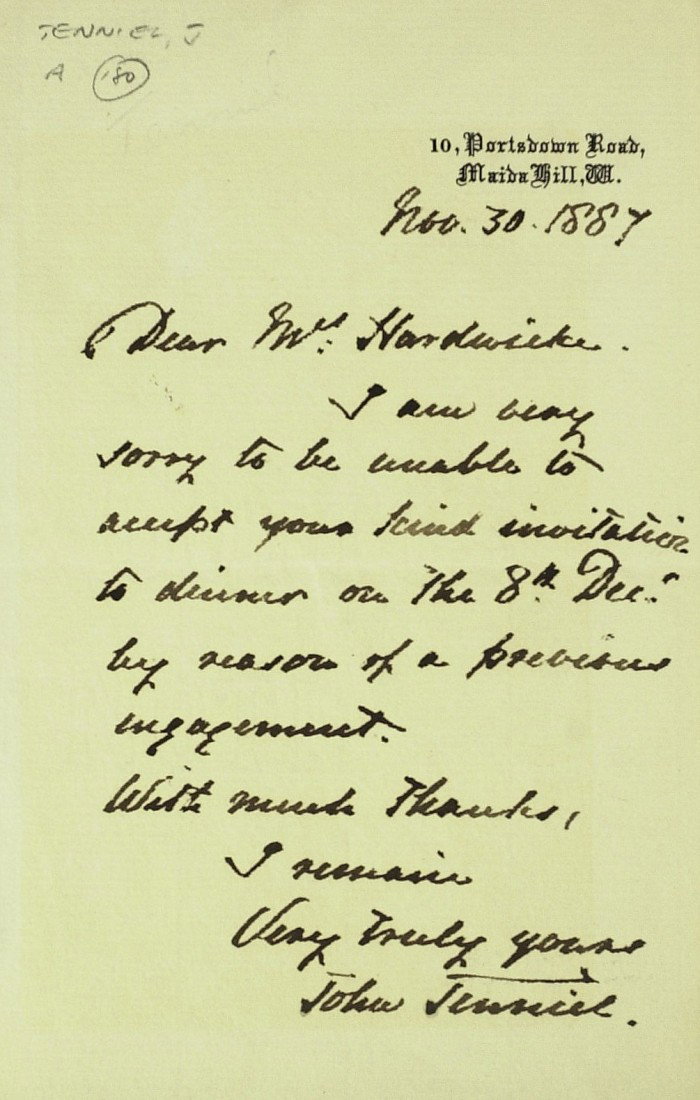 TENNIEL, J
A 180
10, Portsdown Road,
Maida Hill, W.
Nov. 30. 1887
Dear Mrs. Hardwicke.
I am very
sorry to be unable to
accept your kind invitation
to dinner on the 8th. Decr.
by reason of a previous
engagement.
With much thanks,
I remain
Very truly yours
John Tenniel.